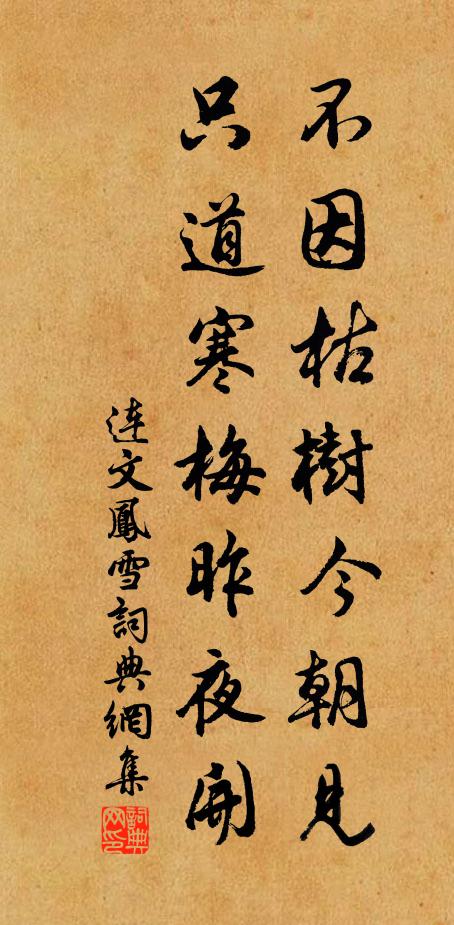 不因枯樹今朝見
只道寒梅昨夜開
連文鳳雪詞典網集
詞典網印